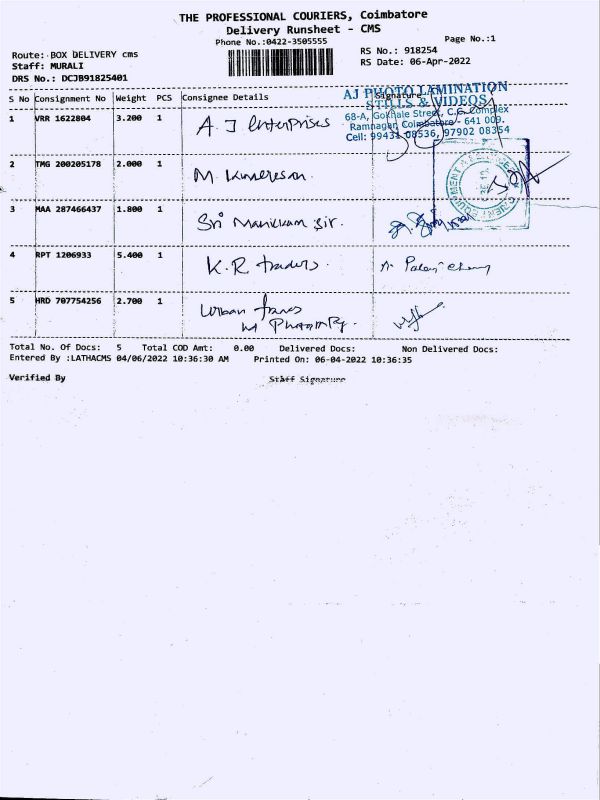 THE PROFESSIONAL COURIERS, Coimbatore
Delivery Runsheet - CMS
Phone No.:0422-3505555
Page No.:1
Route: BOX DELIVERY cms
RS No.: 918254
Staff: MURALI
RS Date: 06-Apr-2022
DRS No.: DCJB91825401
S No Consignment No Weight PCS Consignee Details Signature
AJ PHOTO LAMINATION
STILLS & VIDEOS
68-A, Gokhale Street, C.G. Complex
Ramnagar, Coimbatore - 641 009.
Cell: 99431 08536, 97902 08354
1 VRR 1622804 3.200 1 A. J Enterprises
2 TMG 200205178 2.000 1 M. Kumeresan.
3 MAA 287466437 1.800 1 Sri Manikkam Sir.
4 RPT 1206933 5.400 1 K.R. traders.
5 HRD 707754256 2.700 1 Urban
Total No. Of Docs: 5 Total COD Amt: 0.00 Delivered Docs: Non Delivered Docs:
Entered By :LATHACMS 04/06/2022 10:36:30 AM Printed On: 06-04-2022 10:36:35
Verified By Staff Signature